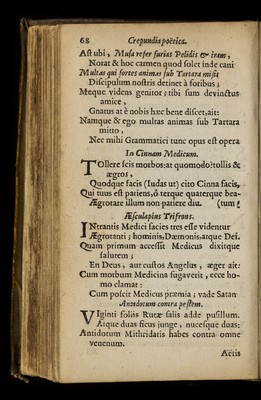 68 Crepundia poëtica.
Ast ubi, Musa refer furias Pelidis & iram,
Norat & hoc carmen quod solet inde cani
Multas qui fortes animas sub Tartara misit
Discipulum nostris detinet à foribus;
Meque videns genitor: tibi sum devinctus
amice,
Gnatus at è nobis hæc bene discet, ait:
Namque & ego multas animas sub Tartara
mitto,
Nec mihi Grammatici tunc opus est opera
In Cinnam Medicum.
TOllere scis morbos: at quomodo? tollis &
ægros,
Quodque facis (Iudas ut) cito Cinna facis,
Qui tuus est patiens, ô terque quaterque bea-
Ægrotare illum non patiere diu. (tum!
Æsculapius Trifrons.
INtrantis Medici facies tres esse videntur
Ægrotanti; hominis, Dæmonis, atque Dei.
Quam primum accessit Medicus dixitque
salutem;
En Deus, aut custos Angelus, æger ait:
Cum morbum Medicina fugaverit, ecce ho-
mo clamat:
Cum poscit Medicus præmia; vade Satan
Antidotum contra pestem.
VIginti foliis Rutæ salis adde pusillum.
Atque duas ficus junge, nucesque duas:
Antidotum Mithridatis habes contra omne
venenum.
Aëris